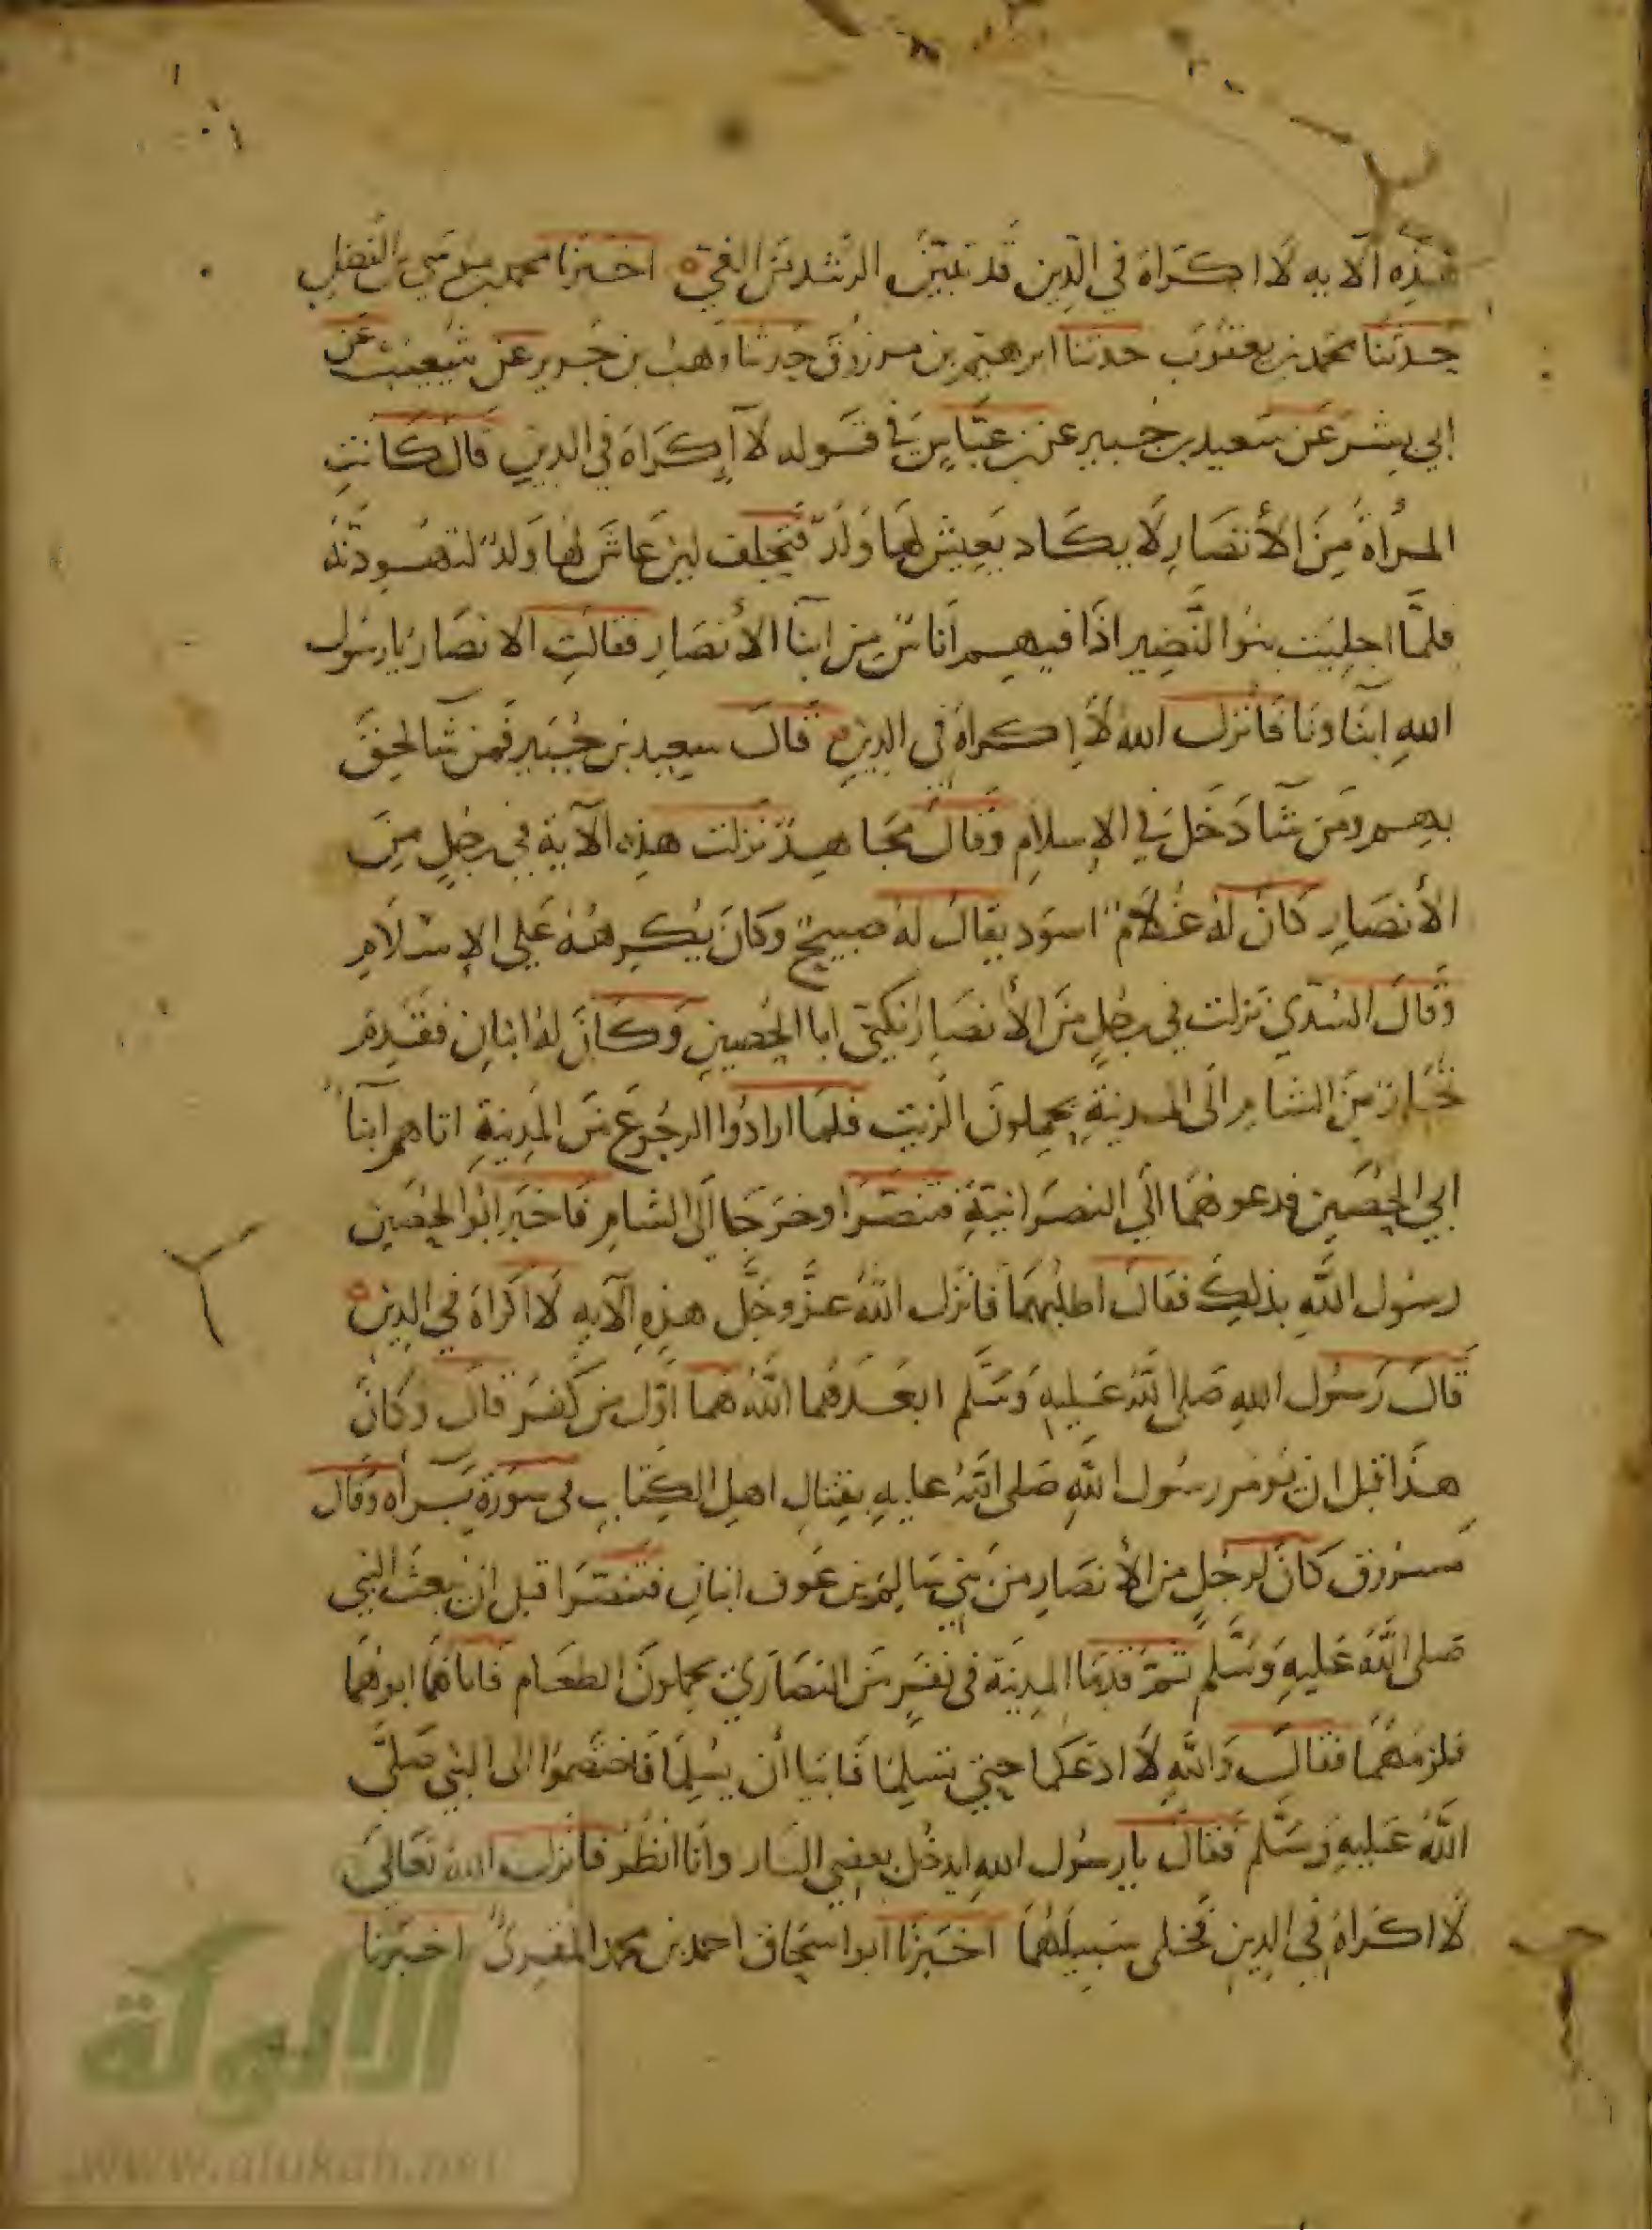 هَذِهِ الآيه لَا اكَرَاهَ فِي الدِّينِ قَد تَبَيَّنَ الرُّشدُ مِنَ الغَيِّ اخبَرنا محمد بن موسى بن الفَضلِ
حدثنا محمد بن يعقوب حدثنا ابرهيم بن مرزوق حدثنا وَهبُ بن جَرير عن شعبة عن
ابي بِشر عَن سَعيد بن جُبير عن ابن عَبَّاسٍ في قَوله لآ إكَرَاهَ في الدين قال كَانتِ
المرأة مِنَ الأنصَارِ لَا يكَاد يَعِيش لهَا وَلَدٌ فتَحلِف لئن عَاشَ لهَا وَلدٌ لتهَوِّدَنَّهُ
فلمَّا اجلِيَت بنوا النَّضِير اذَا فيهِم أنَاسٌ مِن ابنآ الأنصَارِ فقالتِ الانصَارُ يا رسُول
اللهِ ابنَاونَا فَانزلَ اللهُ لَا إكرَاهَ في الدينِ قَالَ سعِيد بن جُبَير فَمن شآ لحِقَ
بهِم ومَن شآ دَخَلَ في الإسلَامِ وَقالَ مجَاهِدٌ نزلت هذِه الآية في رجُلٍ مِنَ
الأنصَارِ كانَ لهُ غُلَامٌ اسوَد يقالُ لهُ صبيحٌ وَكانَ يُكرِههُ عَلى الإسْلَامِ
وَقالَ السُّدّي نَزلت في رجُلٍ مِنَ الأنصَارِ يُكنى ابا الحُصينِ وَكَانَ لهُ ابنانِ فقَدِمَ
تجَّارٌ مِنَ الشامِ الَى المدينةِ يحمِلونَ الزيت فلمَا ارادُوا الرجُوع مِنَ المَدِينةِ اتاهم ابنآ
ابي الحُصَين فدعوهُمَا الَى النصرَانيَّةِ فتنصَّرَا وخرَجَا الَى الشامِ فَاخبَرَ ابُوا الحُصَينِ
رسُول اللهِ بذلِكَ فقالَ اطلُبهُمَا فانزل اللهُ عزَّ وجَلَّ هذِهِ الآيه لَا اكرَاهَ في الدِينِ
قَالَ رَسُول اللهِ صَلى اللهُ عَليهِ وَسَلَّم ابعَدهُما اللهُ هُمَا اوّل من كَفَرَ قالَ وكَانَ
هذَا قبل ان يُومر رسُول اللهِ صَلى اللهُ عليهِ بقِتالِ اهلِ الكِتابِ في سورَةِ بَرأَه وَقال
مَسرُوق كانَ لرجُلٍ من الأنصَارِ مِن بَني سَالم بن عَوف ابنانِ فتنصَّرَا قبل ان يُبعثَ النبي
صَلى اللهُ عَليهِ وَسَلَّم ثمَّ قدمَا المدِينَة في نفَرٍ مِنَ النصَارَي يحملونَ الطعَام فَاتاهُمَا ابوهُمَا
فلزمَهُمَا فقالَ وَاللهِ لَا ادَعكما حتي تسلِمَا فَابَيا أن يُسلِمَا فَاختَصَموا الى النبي صَلى
اللهُ عَليهِ وَسَلَّم فقالَ يا رسُول اللهِ ايدخُل بعضي النار وانَا انظُرُ فانزل اللهُ تعَالى
لَا اكَرَاهَ في الدِينِ فخلى سَبيلَهُمَا اخبَرنَا ابو اسحَاق احمد بن محمد المقرى اخبَرنا
الألوكة
www.alukah.net